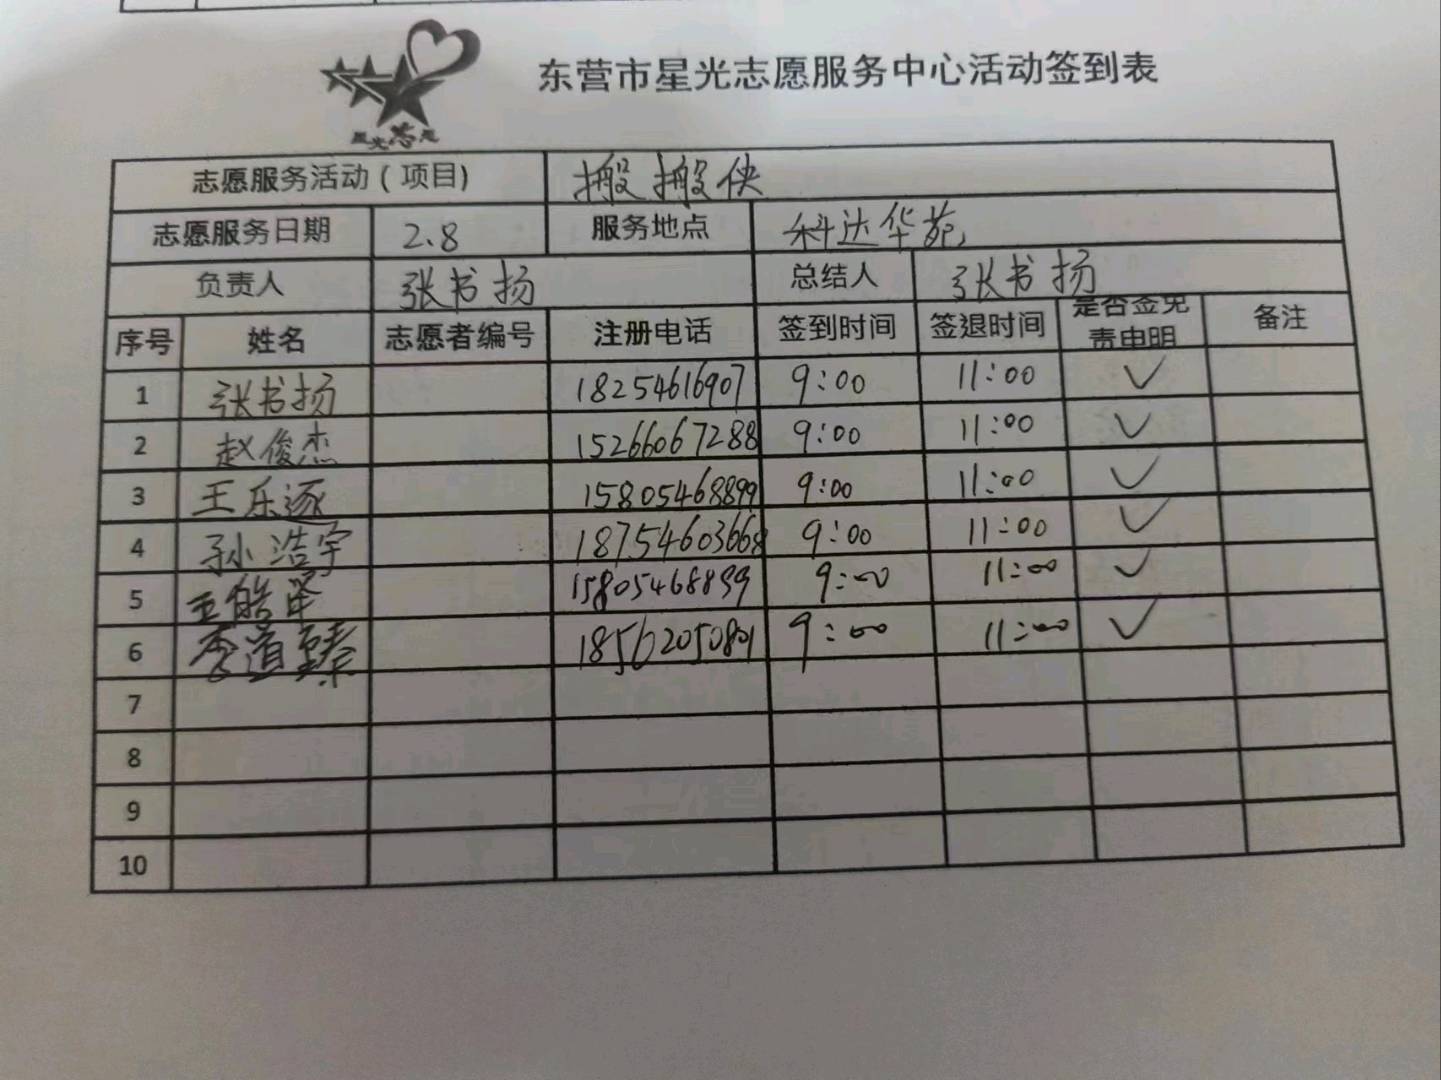 星光志愿
东营市星光志愿服务中心活动签到表
志愿服务活动（项目） 搬搬侠
志愿服务日期 2.8 服务地点 科达华苑
负责人 张书扬 总结人 张书扬
序号 姓名 志愿者编号 注册电话 签到时间 签退时间 是否签免责申明 备注
1 张书扬 18254616907 9:00 11:00 ✓
2 赵俊杰 15266067288 9:00 11:00 ✓
3 王乐逐 15805468899 9:00 11:00 ✓
4 孙浩宇 18754603668 9:00 11:00 ✓
5 王皓泽 15805468899 9:00 11:00 ✓
6 李道臻 18562050801 9:00 11:00 ✓
7
8
9
10